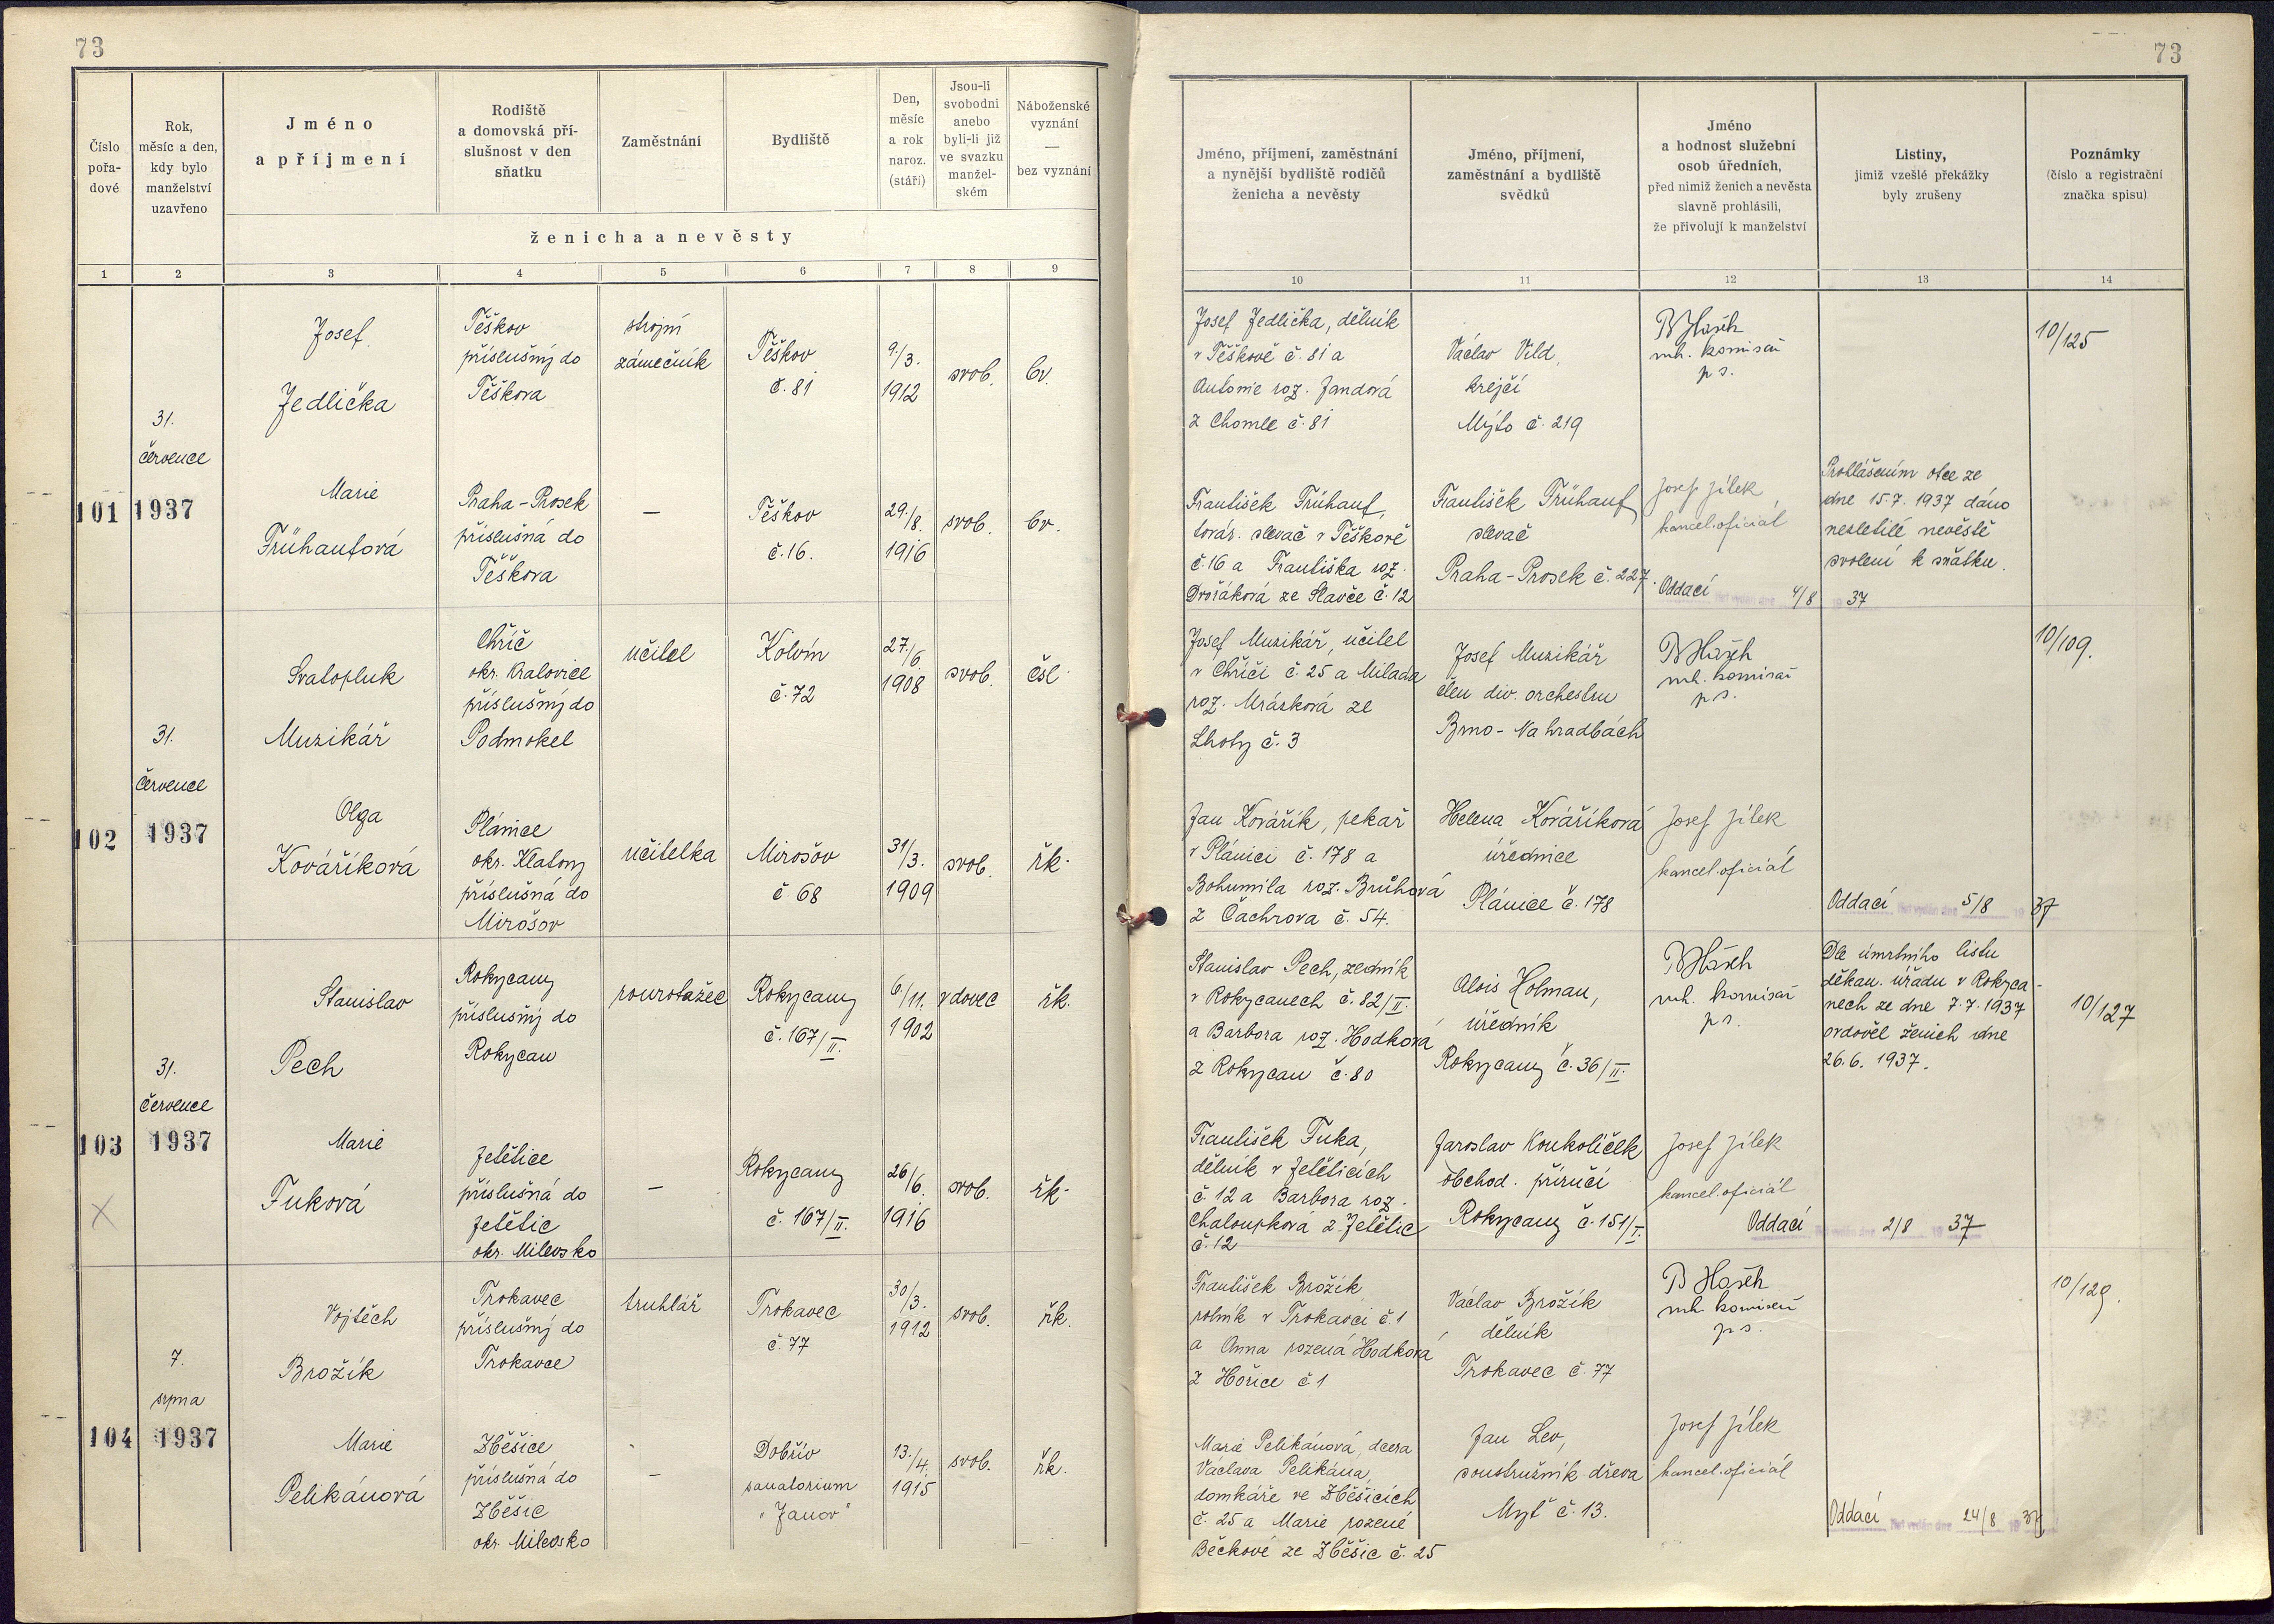 73
73
Číslo pořa-dové
Rok, měsíc a den, kdy bylo manželství uzavřeno
Jméno a příjmení
Rodiště a domovská pří-slušnost v den sňatku
Zaměstnání
Bydliště
Den, měsíc a rok naroz. (stáří)
Jsou-li svobodni anebo byli-li již ve svazku manžel-ském
Náboženské vyznání — bez vyznání
ženicha a nevěsty
Jméno, příjmení, zaměstnání a nynější bydliště rodičů ženicha a nevěsty
Jméno, příjmení, zaměstnání a bydliště svědků
Jméno a hodnost služební osob úředních, před nimiž ženich a nevěsta slavně prohlásili, že přivolují k manželství
Listiny, jimiž vzešlé překážky byly zrušeny
Poznámky (číslo a registrační značka spisu)
1 2 3 4 5 6 7 8 9 10 11 12 13 14
101
31.
července
1937
Josef
Jedlička
Těškov
příslušný do
Těškova
strojní
zámečník
Těškov
č. 81
9./3.
1912
svob.
bv.
Josef Jedlička, dělník
v Těškově č. 81 a
Antonie roz. Jandová
z Chomle č. 81
Václav Vild,
krejčí
Mýto č. 219
komisař
p s.
10/125
Marie
Frühaufová
Praha-Prosek
příslušná do
Těškova
—
Těškov
č. 16.
29./8.
1916
svob.
bv.
František Frühauf,
továr. slevač v Těškově
č. 16 a Františka roz.
Dvořáková ze Slavče č. 12
František Frühauf
slevač
Praha-Prosek č. 227.
Josef Jílek,
kancel. oficiál
Prohlášením otce ze
dne 15.7. 1937 dáno
nezletilé nevěstě
svolení k sňatku.
Oddací list vydán dne 4/8 1937
102
31.
července
1937
Svatopluk
Muzikář
Chříč
okr. Kralovice
příslušný do
Podmokel
učitel
Kolvín
č. 72
27./6.
1908
svob.
čsl.
Josef Muzikář, učitel
v Chříči č. 25 a Milada
roz. Mrázková ze
Lhoty č. 3
Josef Muzikář
člen div. orchestru
Brno - Na hradbách
komisař
p s.
10/109.
Olga
Kováříková
Plánice
okr. Klatovy
příslušná do
Mirošov
učitelka
Mirošov
č. 68
31/3.
1909
svob.
řk.
Jan Kovářík, pekař
v Plánici č. 178 a
Bohumila roz. Brůhová
z Čachrova č. 54.
Helena Kováříková
úřednice
Plánice č. 178
Josef Jílek
kancel. oficiál
Oddací list vydán dne 5/8 1937
103
31.
července
1937
Stanislav
Pech
Rokycany
příslušný do
Rokycan
rourotažec
Rokycany
č. 167/II.
6/11.
1902
vdovec
řk.
Stanislav Pech, zedník
v Rokycanech č. 82/II.
a Barbora roz. Hodková
z Rokycan č. 80
Alois Holman,
úředník
Rokycany č. 36/II.
komisař
p s.
Dle úmrtního listu
děkan. úřadu v Rokyca-
nech ze dne 7.7. 1937
ovdověl ženich dne
26.6. 1937.
10/127
Marie
Fuková
Jetětice
příslušná do
Jetětic
okr. Milevsko
—
Rokycany
č. 167/II.
26/6.
1916
svob.
řk.
František Fuka,
dělník v Jetěticích
č. 12 a Barbora roz.
Chaloupková z Jetětic
č. 12
Jaroslav Koukolíček
obchod. příručí
Rokycany č. 151/I.
Josef Jílek
kancel. oficiál
Oddací list vydán dne 2/8 1937
104
7.
srpna
1937
Vojtěch
Brožík
Trokavec
příslušný do
Trokavce
truhlář
Trokavec
č. 77
30/3.
1912
svob.
řk.
František Brožík
rolník v Trokavci č. 1
a Anna rozená Hodková
z Hořice č. 1
Václav Brožík
dělník
Trokavec č. 77
komisař
p s.
10/129.
Marie
Pelikánová
Zběšice
příslušná do
Zběšic
okr. Milevsko
—
Dobřív
sanatorium
"Janov"
13./4.
1915
svob.
řk.
Marie Pelikánová, dcera
Václava Pelikána,
domkáře ve Zběšicích
č. 25 a Marie rozené
Bečkové ze Zběšic č. 25
Jan Lev,
soustružník dřeva
Myť č. 13.
Josef Jílek
kancel. oficiál
Oddací list vydán dne 24/8 1937